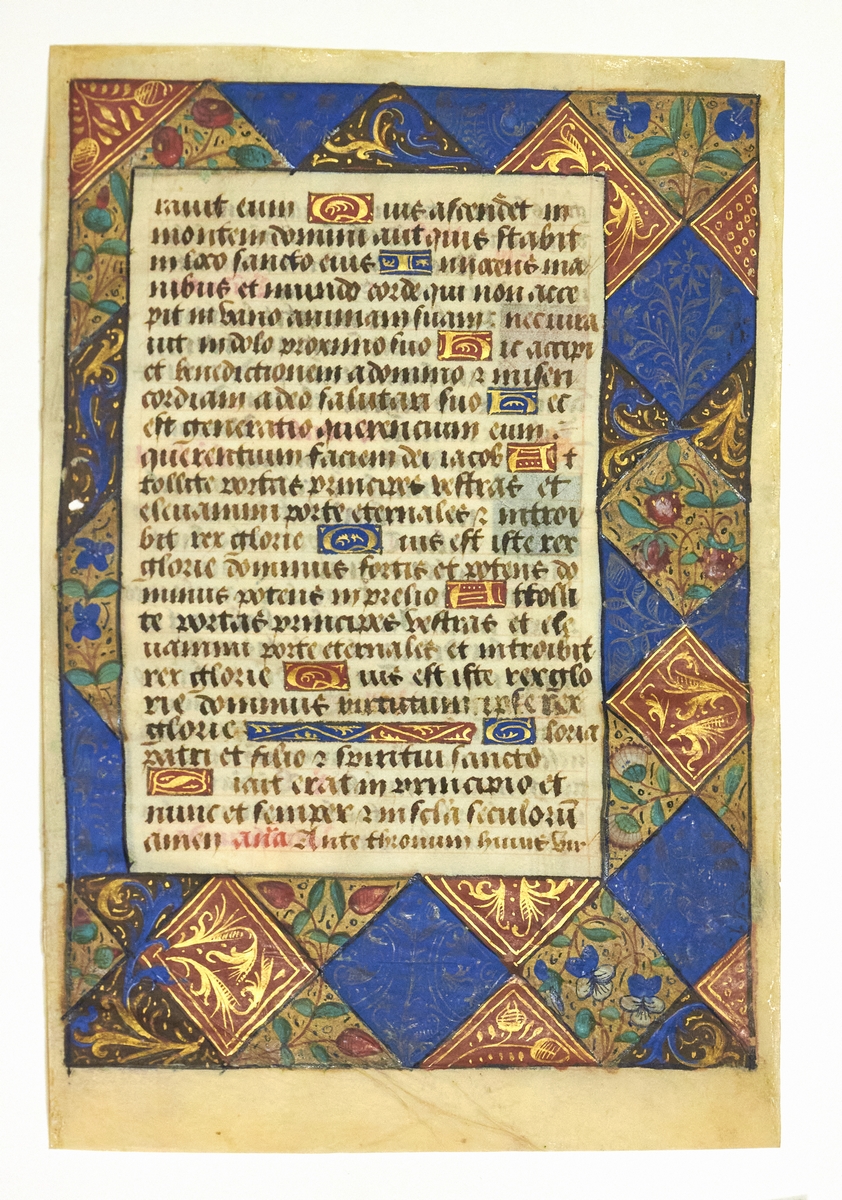 rauit eum Quis ascendet in
montem domini aut quis stabit
in loco sancto eius Innocens ma
nibus et mundo corde qui non acce
pit in vano animam suam: nec iura
uit in dolo proximo suo Hic accipi
et benedictionem a domino ⁊ miseri
cordiam a deo salutari suo Hec
est generatio querencium eum:
quērentium faciem dei iacob At
tollite portas principes vestras et
eleuamini porte eternales ⁊ introi
bit rex glorie Quis est iste rex
glorie dominus fortis et potens do
minus potens in prelio Attolli
te portas principes vestras et ele
uamini porte eternales et introibit
rex glorie Quis est iste rex glo
rie dominus virtutum ipse rex
glorie Gloria
patri et filio ⁊ spiritui sancto
Sicut erat in principio et
nunc et semper ⁊ in scl̄a seculorū
amen an̄a Ante thronum huius vir